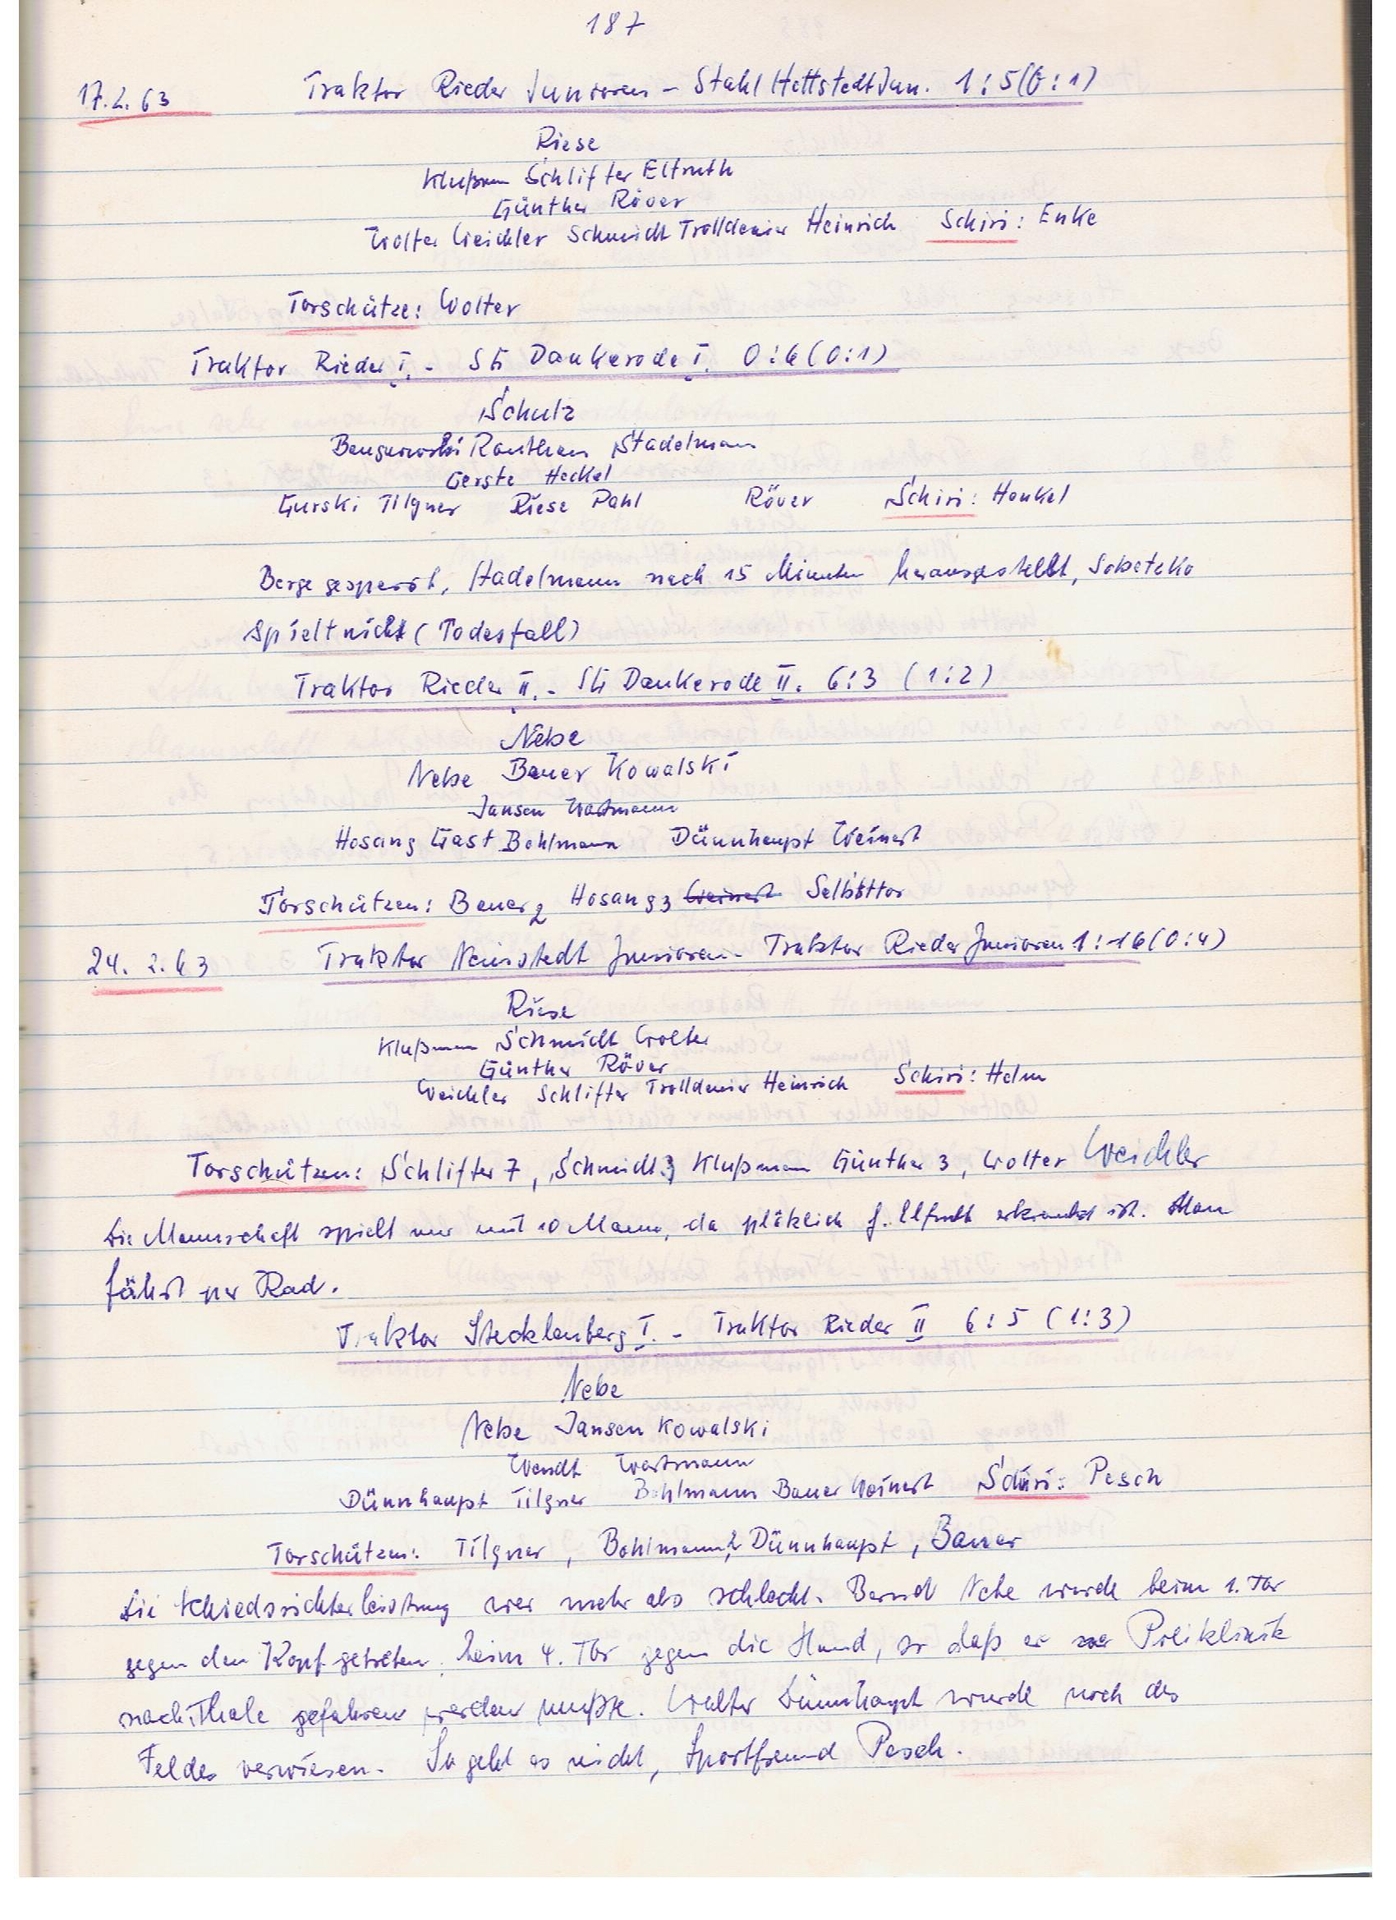 187
17.2.63 Traktor Rieder Junioren - Stahl Hettstedt Jun. 1:5 (0:1)
Riese
Klußman Schlifter Elfruth
Günther Röver
Wolter Weichler Schmidt Trolldenier Heinrich Schiri: Enke
Torschütze: Wolter
Traktor Rieder I. - Sti Dankerode I. 0:6 (0:1)
Schulz
Stadelmann
Gerste Heckel
Gurski Tilgner Riese Pahl Röver Schiri: Henkel
Berge gesperrt, Stadelmann nach 15 Minuten herausgestellt, Sobetzko
spielt nicht (Todesfall)
Traktor Rieder II. - Sti Dankerode II. 6:3 (1:2)
Nebe
Nebe Bauer Kowalski
Jansen Wortmann
Hosang Gast Bohlmann Dünnhaupt Weinert
Torschützen: Bauer 2 Hosang 3 Weinert Selbsttor
24.2.63 Traktor Neinstedt Junioren - Traktor Rieder Junioren 1:16 (0:4)
Riese
Klußman Schmidt Wolter
Günther Röver
Weichler Schlifter Trolldenier Heinrich Schiri: Helm
Torschützen: Schlifter 7, Schmidt 3 Klußman Günther 3, Wolter Weichler
Die Mannschaft spielt nur mit 10 Mann, da plötzlich J. Elfruth erkrankt ist. Man
fährt per Rad.
Traktor Stecklenberg I. - Traktor Rieder II 6:5 (1:3)
Nebe
Nebe Jansen Kowalski
Wendt Wortmann
Dünnhaupt Tilgner Bohlmann Bauer Weinert Schiri: Pesch
Torschützen: Tilgner, Bohlmann 2, Dünnhaupt, Bauer
Die Schiedsrichterleistung war mehr als schlecht. Bernd Nebe wurde beim 1. Tor
gegen den Kopf getreten, beim 4. Tor gegen die Hand, so daß er zur Poliklinik
nach Thale gefahren werden mußte. Walter Dünnhaupt wurde noch des
Feldes verwiesen. So geht es nicht, Sportfreund Pesch.